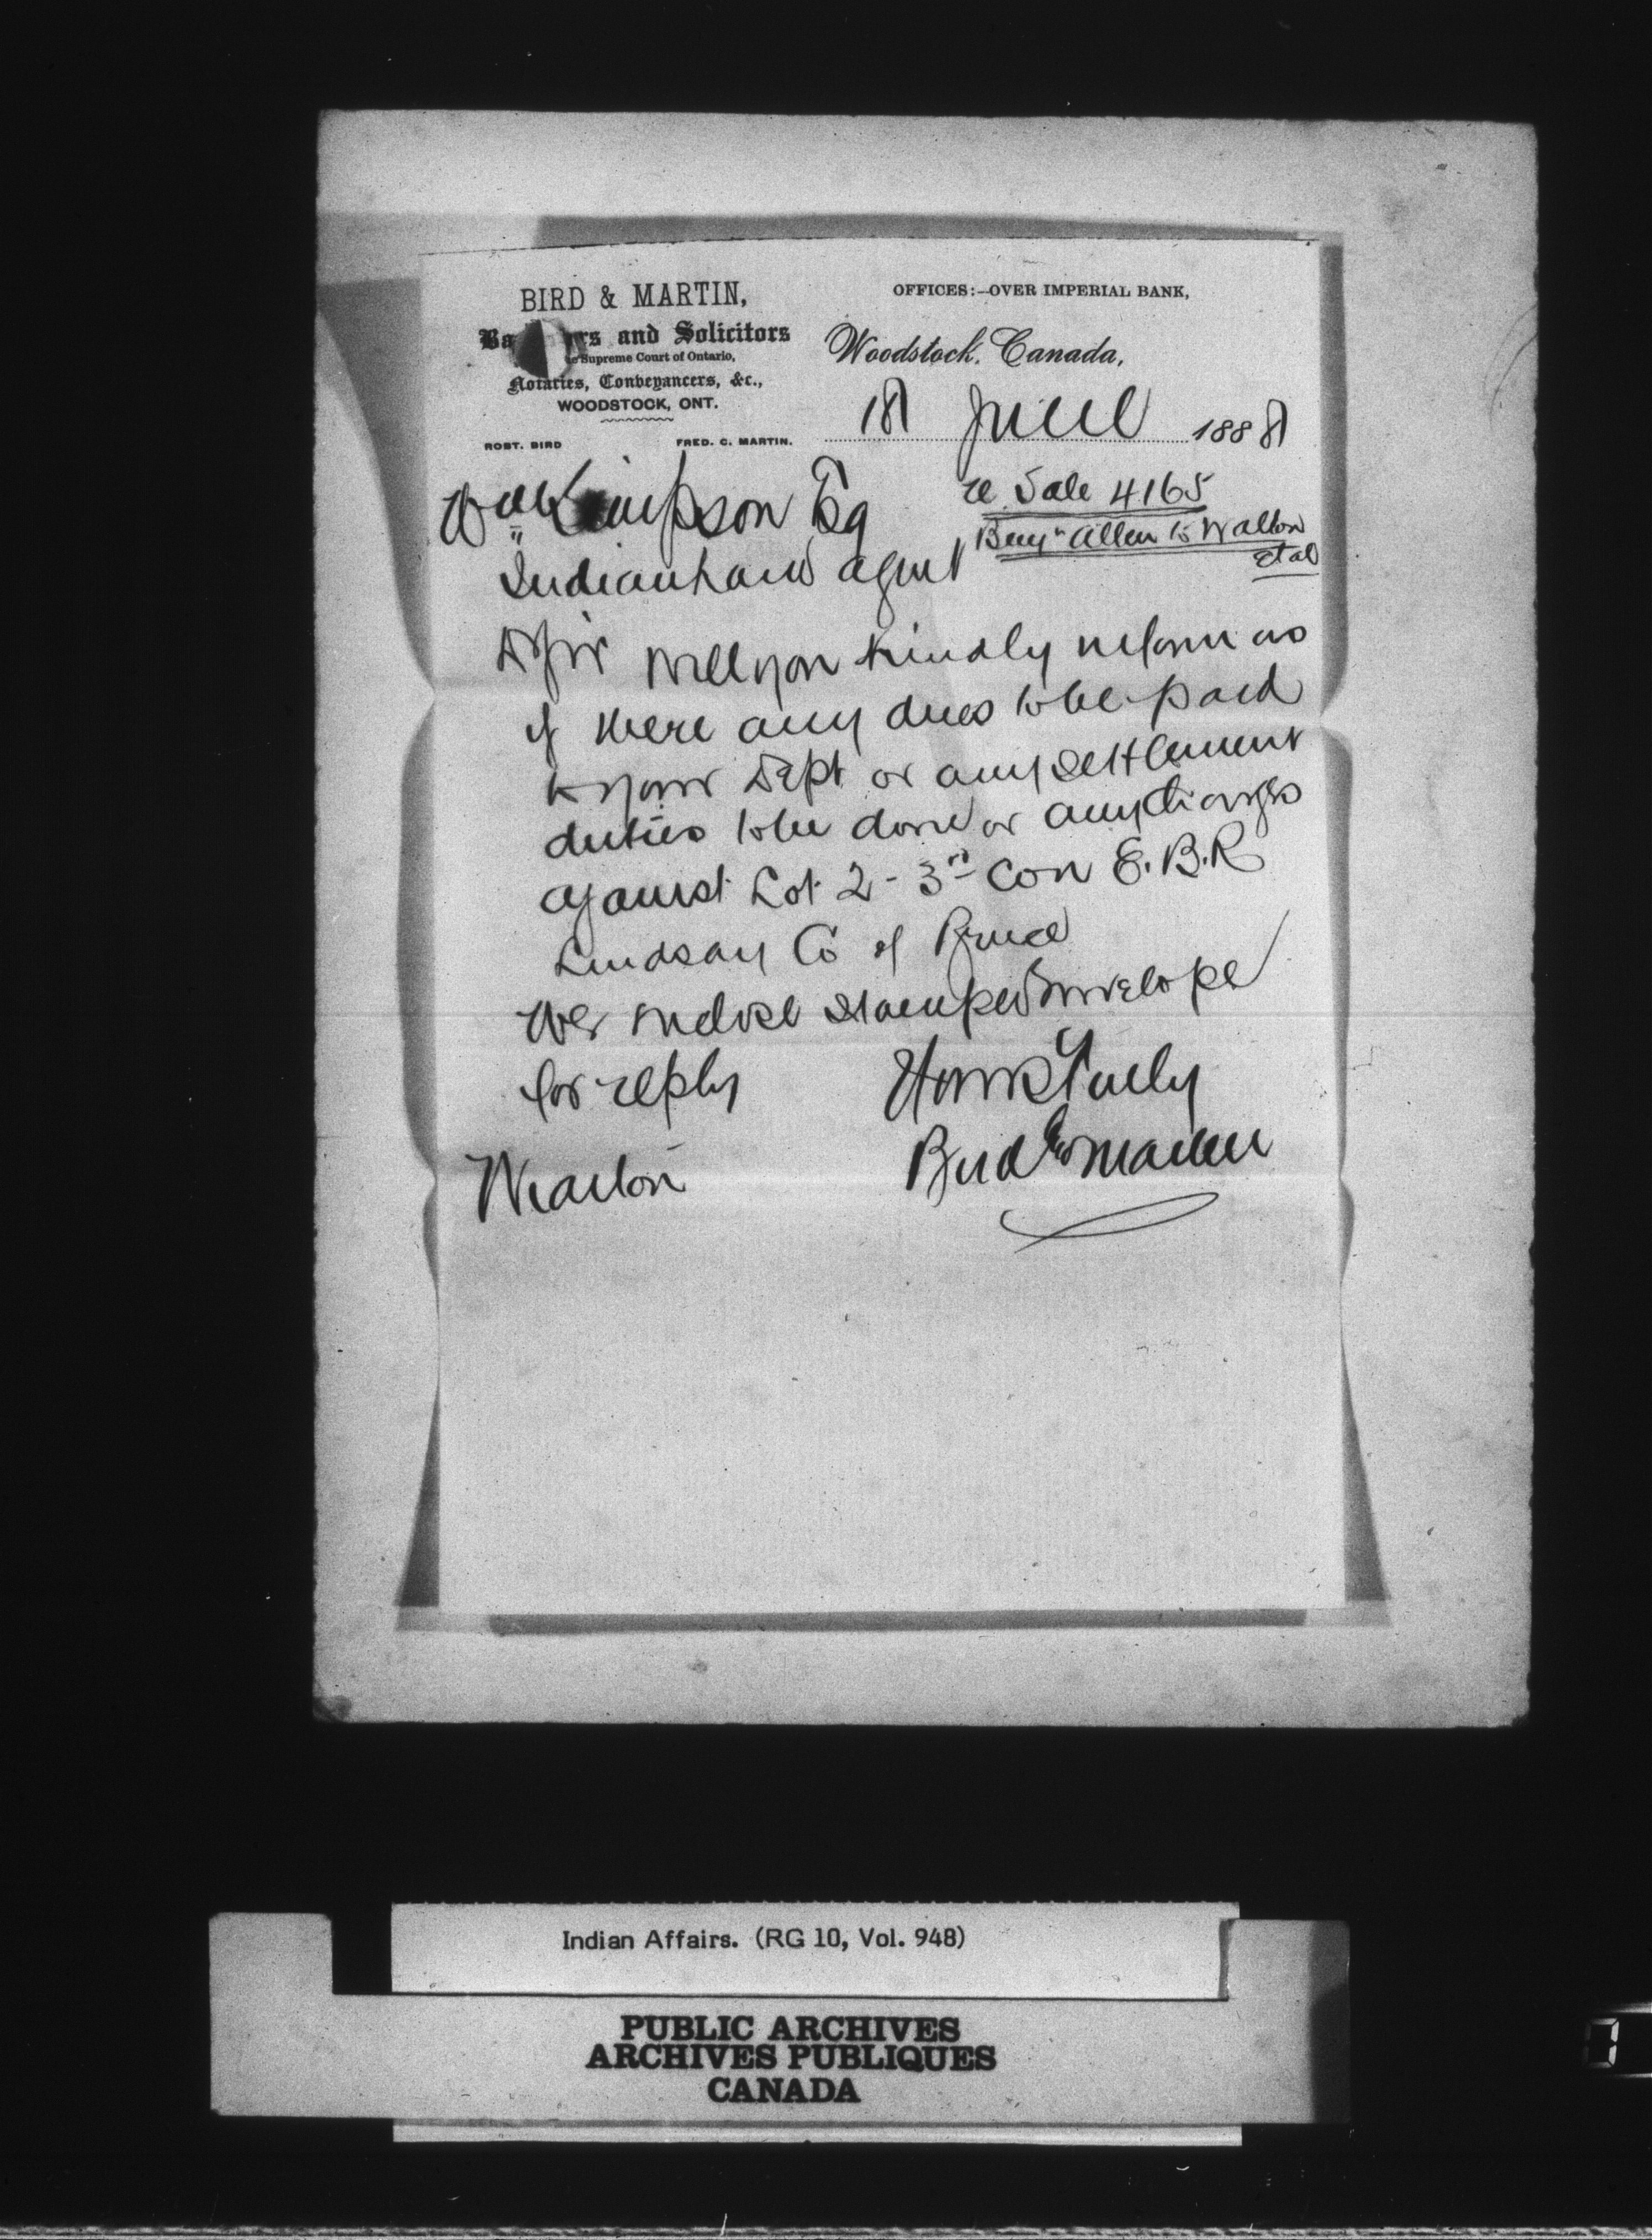 BIRD & MARTIN,
Ba rs and Solicitors
Supreme Court of Ontario,
Notaries, Conveyancers, &c.,
WOODSTOCK, ONT.
ROBT. BIRD FRED. C. MARTIN.
OFFICES:—OVER IMPERIAL BANK,
Woodstock, Canada,
18 June 1888
Wm Simpson Esq
Indian Land agent
re Sale 4165
Benjn Allen to Walton
et al
D Sir Will you kindly inform us
if there any dues to be paid
to your Dept or any settlement
duties to be done or any charges
against Lot 2 - 3rd Con E.B.R
Lindsay Co of Bruce
We enclose stamped envelope
for reply
Yours truly
Bird & Martin
Wiarton
Indian Affairs. (RG 10, Vol. 948)
PUBLIC ARCHIVES
ARCHIVES PUBLIQUES
CANADA